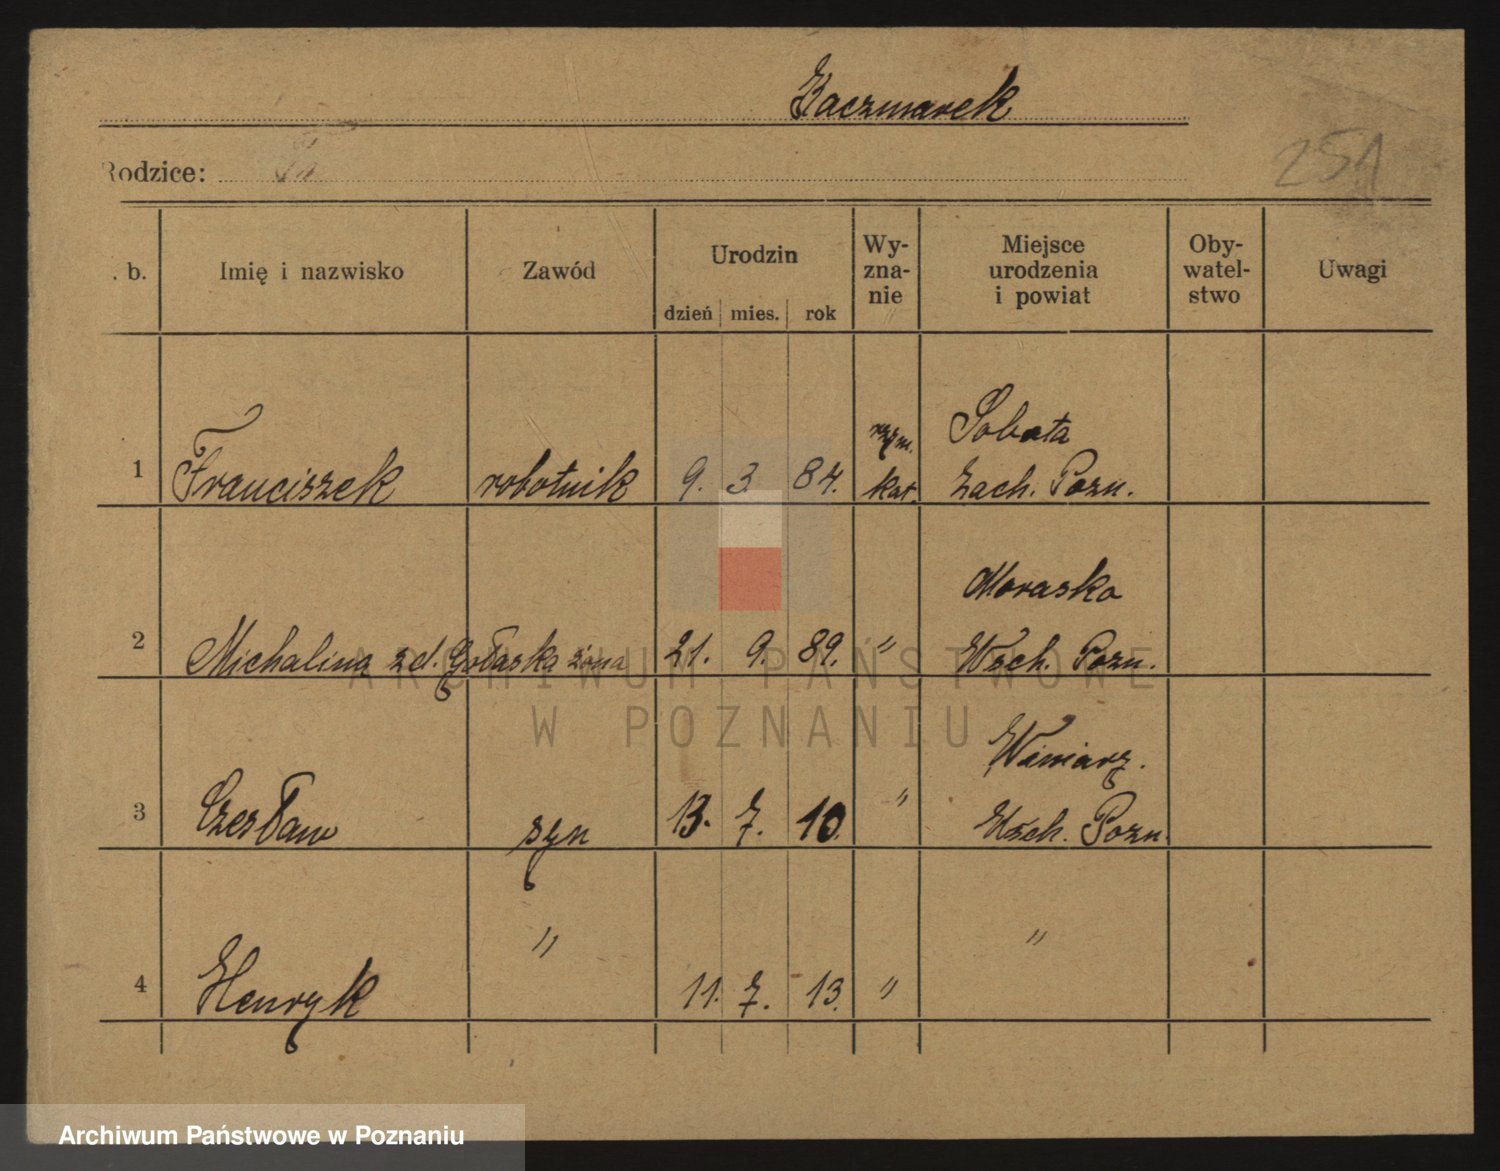 Kaczmarek
Rodzice:
251
. b. Imię i nazwisko Zawód Urodzin dzień mies. rok Wy-zna-nie Miejsce urodzenia i powiat Oby-watel-stwo Uwagi
rzym. Sobota
1 Franciszek robotnik 9. 3. 84. kat. Zach. Pozn.
Morasko
2 Michalina zd. Gołaska żona 21. 9. 89. " Wsch. Pozn.
Winiary.
3 Czesław syn 13. 7. 10. " Wsch. Pozn.
4 Henryk " 11. 7. 13. " "
ARCHIWUM PAŃSTWOWE
W POZNANIU
Archiwum Państwowe w Poznaniu